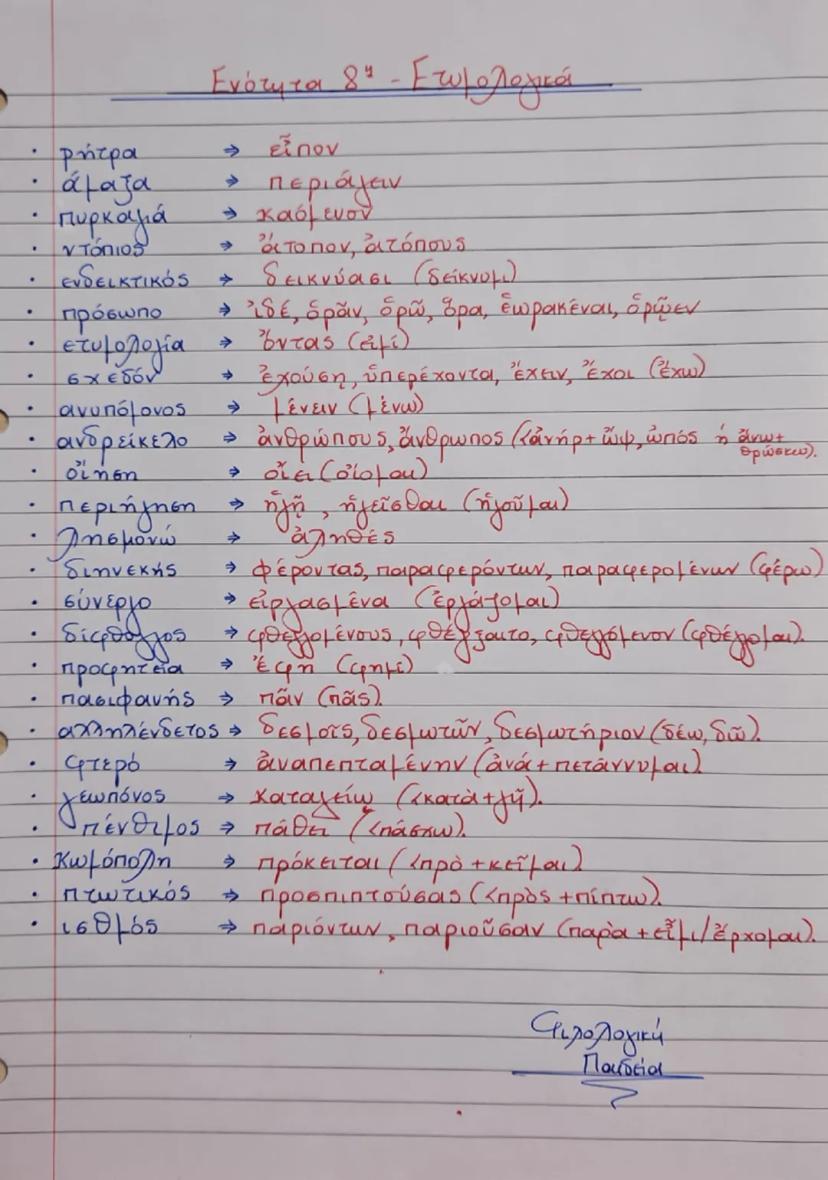 Ενότητα 8η - Ετυμολογικά
• ρήτρα ⇒ εἶπον
• άμαξα ⇒ περιάγειν
• πυρκαγιά ⇒ καόμενον
• ντόπιος ⇒ ἄτοπον, ἀτόπους
• ενδεικτικός ⇒ δεικνύασι (δείκνυμι)
• πρόσωπο ⇒ ἰδέ, ὁρᾶν, ὁρῶ, ὅρα, ἑωρακέναι, ὁρῷεν
• ετυμολογία ⇒ ὄντας (εἰμί)
• σχεδόν ⇒ ἐχούσῃ, ὑπερέχοντα, ἔχειν, ἔχοι (ἔχω)
• ανυπόμονος ⇒ μένειν (μένω)
• ανδρείκελο ⇒ ἀνθρώπους, ἄνθρωπος (<ἀνήρ + ὤψ, ὠπός ἡ ἄνω + θρώσκω).
• οἴηση ⇒ οἴει (οἴομαι)
• περιήγηση ⇒ ἡγῇ, ἡγεῖσθαι (ἡγοῦμαι)
• λησμονώ ⇒ ἀληθές
• διηνεκής ⇒ φέροντας, παραφερόντων, παραφερομένων (φέρω)
• σύνεργο ⇒ εἰργασμένα (ἐργάζομαι)
• δίφθογγος ⇒ φθεγγομένους, φθέγξαιτο, φθεγγόμενον (φθέγγομαι).
• προφητεία ⇒ ἔφη (φημί)
• πασιφανής ⇒ πᾶν (πᾶς).
• αλληλένδετος ⇒ δεσμοῖς, δεσμωτῶν, δεσμωτήριον (δέω, δῶ).
• φτερό ⇒ ἀναπεπταμένην (ἀνά + πετάννυμαι)
• γεωπόνος ⇒ καταγείῳ (<κατὰ + γῆ).
• πένθιμος ⇒ πάθει (<πάσχω).
• κωμόπολη ⇒ πρόκειται (<πρὸ + κεῖμαι)
• πτωτικός ⇒ προσπιπτούσας (<πρὸς + πίπτω).
• ισθμός ⇒ παριόντων, παριοῦσαν (παρὰ + εἶμι/ἔρχομαι).
Φιλολογική
Παιδεία